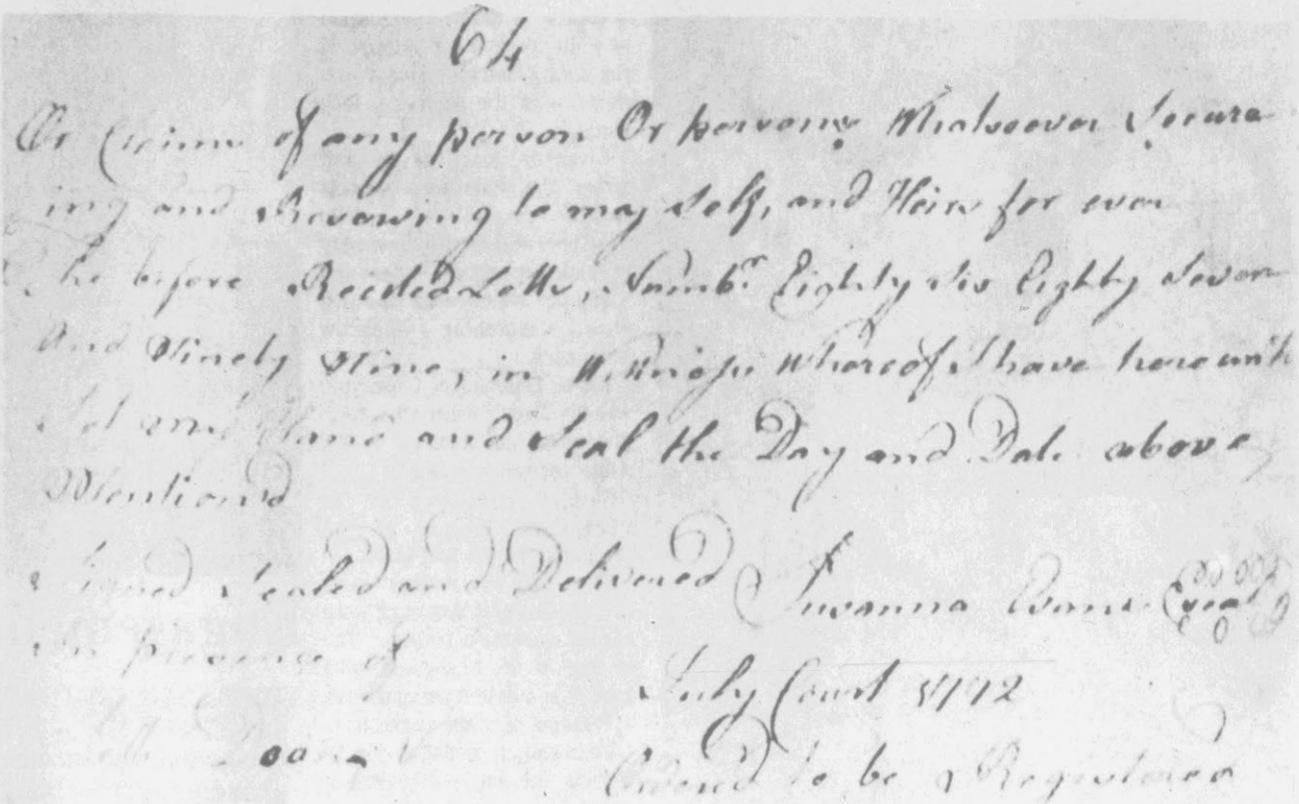 64
Or Claims of any person Or persons Whatsoever Secure
ing and Reserving to my Self, and Heirs for ever
the before Recited Lotts, Numbr Eighty Six Eighty Seven
And Ninety Nine, in Wittness Whereof I have hereunto
Set my Hand and Seal the Day and Date above
Mentiond
Signed Sealed and Delivered Susanna Evans Seal
In presence of
July Court 1792
Ordered to be Registered